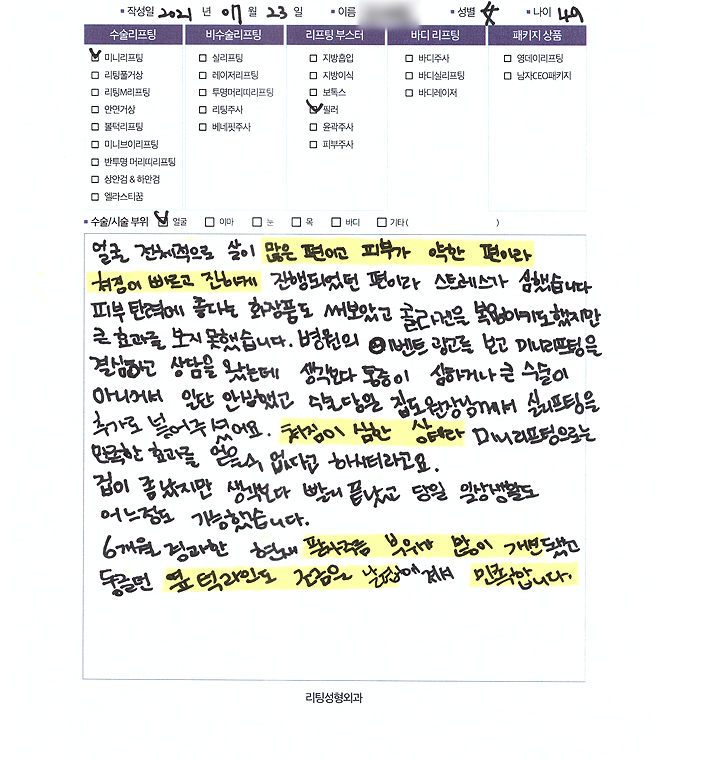 작성일 2021 년 07 월 23 일 이름 성별 女 나이 49
수술리프팅 비수술리프팅 리프팅 부스터 바디 리프팅 패키지 상품
미니리프팅 실리프팅 지방흡입 바디주사 영데이리프팅
리팅풀거상 레이저리프팅 지방이식 바디실리프팅 남자CEO패키지
리팅M리프팅 투명머리띠리프팅 보톡스 바디레이저
안면거상 리팅주사 필러
볼턱리프팅 베네핏주사 윤곽주사
미니브이리프팅 피부주사
반투명 머리띠리프팅
상안검 & 하안검
엘라스티꿈
수술/시술 부위 얼굴 이마 눈 목 바디 기타( )
얼굴 전체적으로 살이 많은 편이고 피부가 약한 편이라
처짐이 빠르고 진하게 진행되었던 편이라 스트레스가 심했습니다
피부탄력에 좋다는 화장품도 써보았고 콜라겐을 복용하기도했지만
큰 효과를 보지 못했습니다. 병원의 이벤트 광고를 보고 미니리프팅을
결심하고 상담을 왔는데 생각보다 통증이 심하거나 큰 수술이
아니여서 일단 안심했고 수술당일 집도원장님께서 실리프팅을
추가로 넣어주셨어요. 처짐이 심한 상태라 미니리프팅으로는
만족한 효과를 얻을수 없다고 하시더라고요.
겁이 좀 났지만 생각보다 빨리 끝났고 당일 일상생활도
어느정도 가능했습니다.
6개월 경과한 현재 팔자주름 부위가 많이 개선됐고
둥글던 옆 턱라인도 조금은 날렵해져서 만족합니다.
리팅성형외과